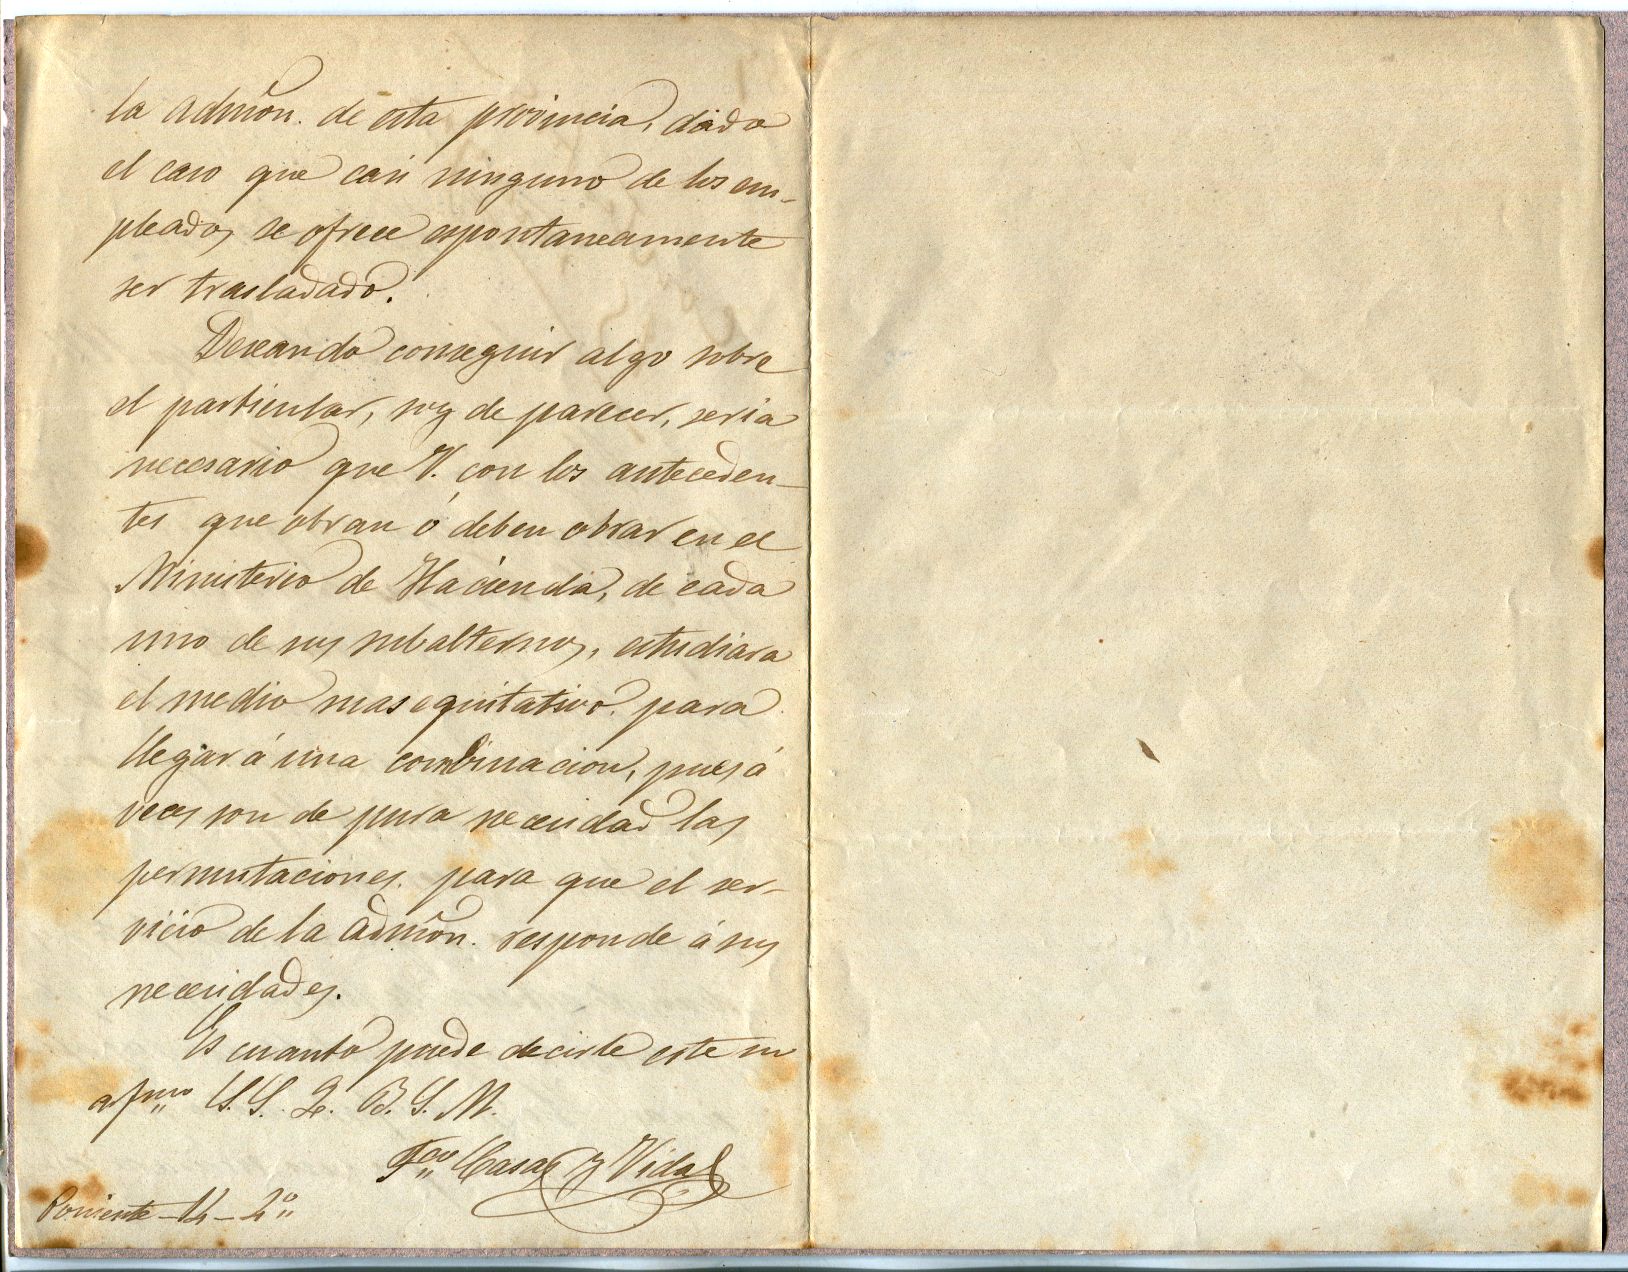 la admõn. de esta provincia, dado
el caso que casi ninguno de los em-
pleados se ofrece espontaneamente
ser trasladado.
Deseando conseguir algo sobre
el particular, soy de parecer, seria
necesario que V. con los anteceden-
tes que obran ó deben obrar en el
Ministerio de Hacienda, de cada
uno de sus subalternos, estudiara
el medio mas equitativo para
llegar á una combinacion, pues á
veces son de pura necesidad las
permutaciones para que el ser-
vicio de la admõn. responde á sus
necesidades.
Es cuanto puede decirle este su
afmo S. S. Q. B. S. M.
Fco Casas y Vidal
Poniente - 12 - 2º